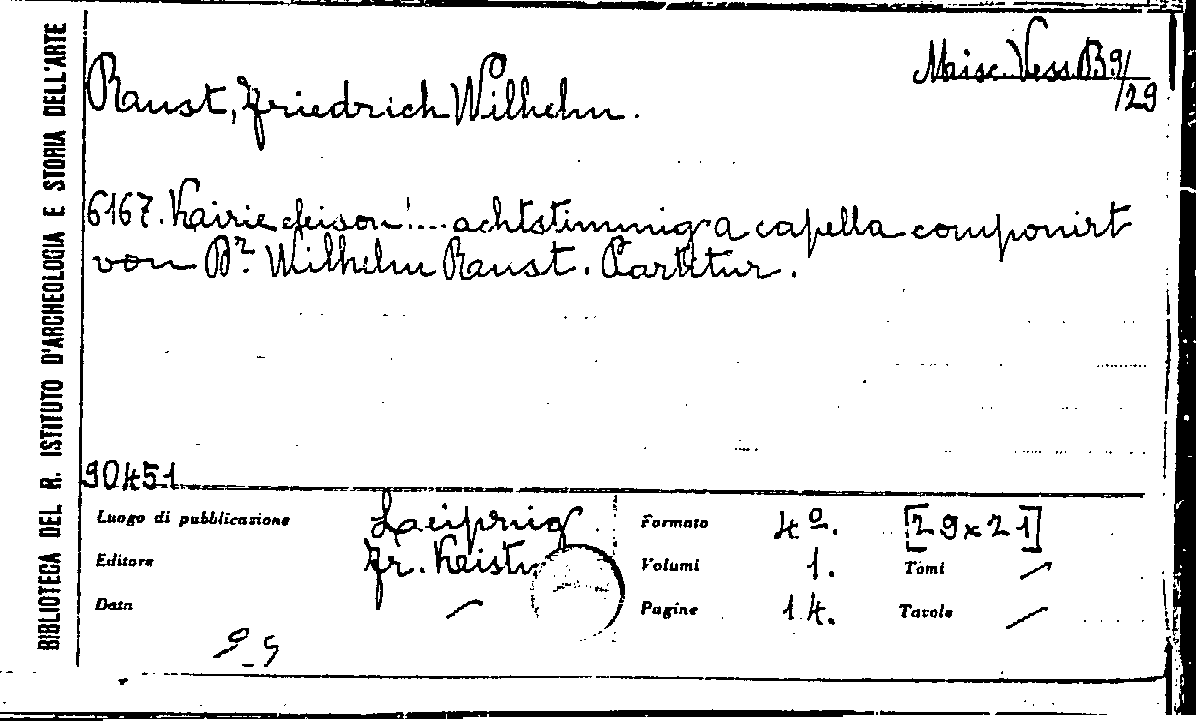 BIBLIOTECA DEL R. ISTITUTO D'ARCHEOLOGIA E STORIA DELL'ARTE
Misc. Vess. B 9/29
Raust, Friedrich Wilhelm.
6167. Kairie eleison!... achtstimmig a capella componirt
von Dr. Wilhelm Raust. Partitur.
90451
Luogo di pubblicazione Leipzig
Editore Fr. Keistn
Data /
Formato 4º. [29x21]
Volumi 1. Tomi /
Pagine 14. Tavole /